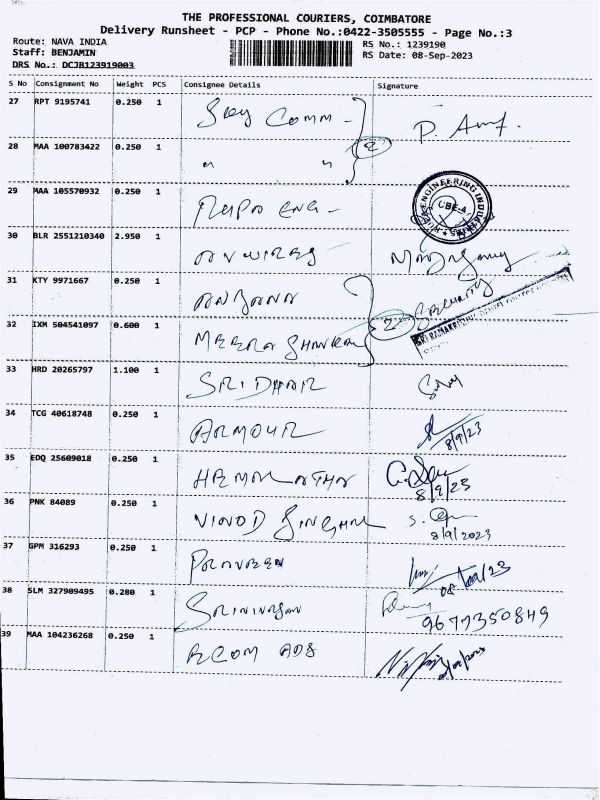 THE PROFESSIONAL COURIERS, COIMBATORE
Delivery Runsheet - PCP - Phone No.:0422-3505555 - Page No.:3
Route: NAVA INDIA
RS No.: 1239190
Staff: BENJAMIN
RS Date: 08-Sep-2023
DRS No.: DCJB123919003
S No Consignment No Weight PCS Consignee Details Signature
27 RPT 9195741 0.250 1 Comm
28 MAA 100783422 0.250 1 " "
2
29 MAA 105570932 0.250 1 ENG
ENGINEERING INDUSTRIES
CBE-4
30 BLR 2551210340 2.950 1
31 KTY 9971667 0.250 1 ANJANA
Security
2
32 IXM 504541097 0.600 1 MEERA SHANKAR
33 HRD 20265797 1.100 1 SRIDHAR
34 TCG 40618748 0.250 1 ARMOUR
8/9/23
35 EDQ 25609018 0.250 1 HEMALATHA
8/9/23
36 PNK 84089 0.250 1 VINOD SINGHAL
8/9/2023
37 GPM 316293 0.250 1 PRAVEEN
08/09/23
38 SLM 327909495 0.280 1 SRINIVASAN
9677350849
39 MAA 104236268 0.250 1 ECOM ADS